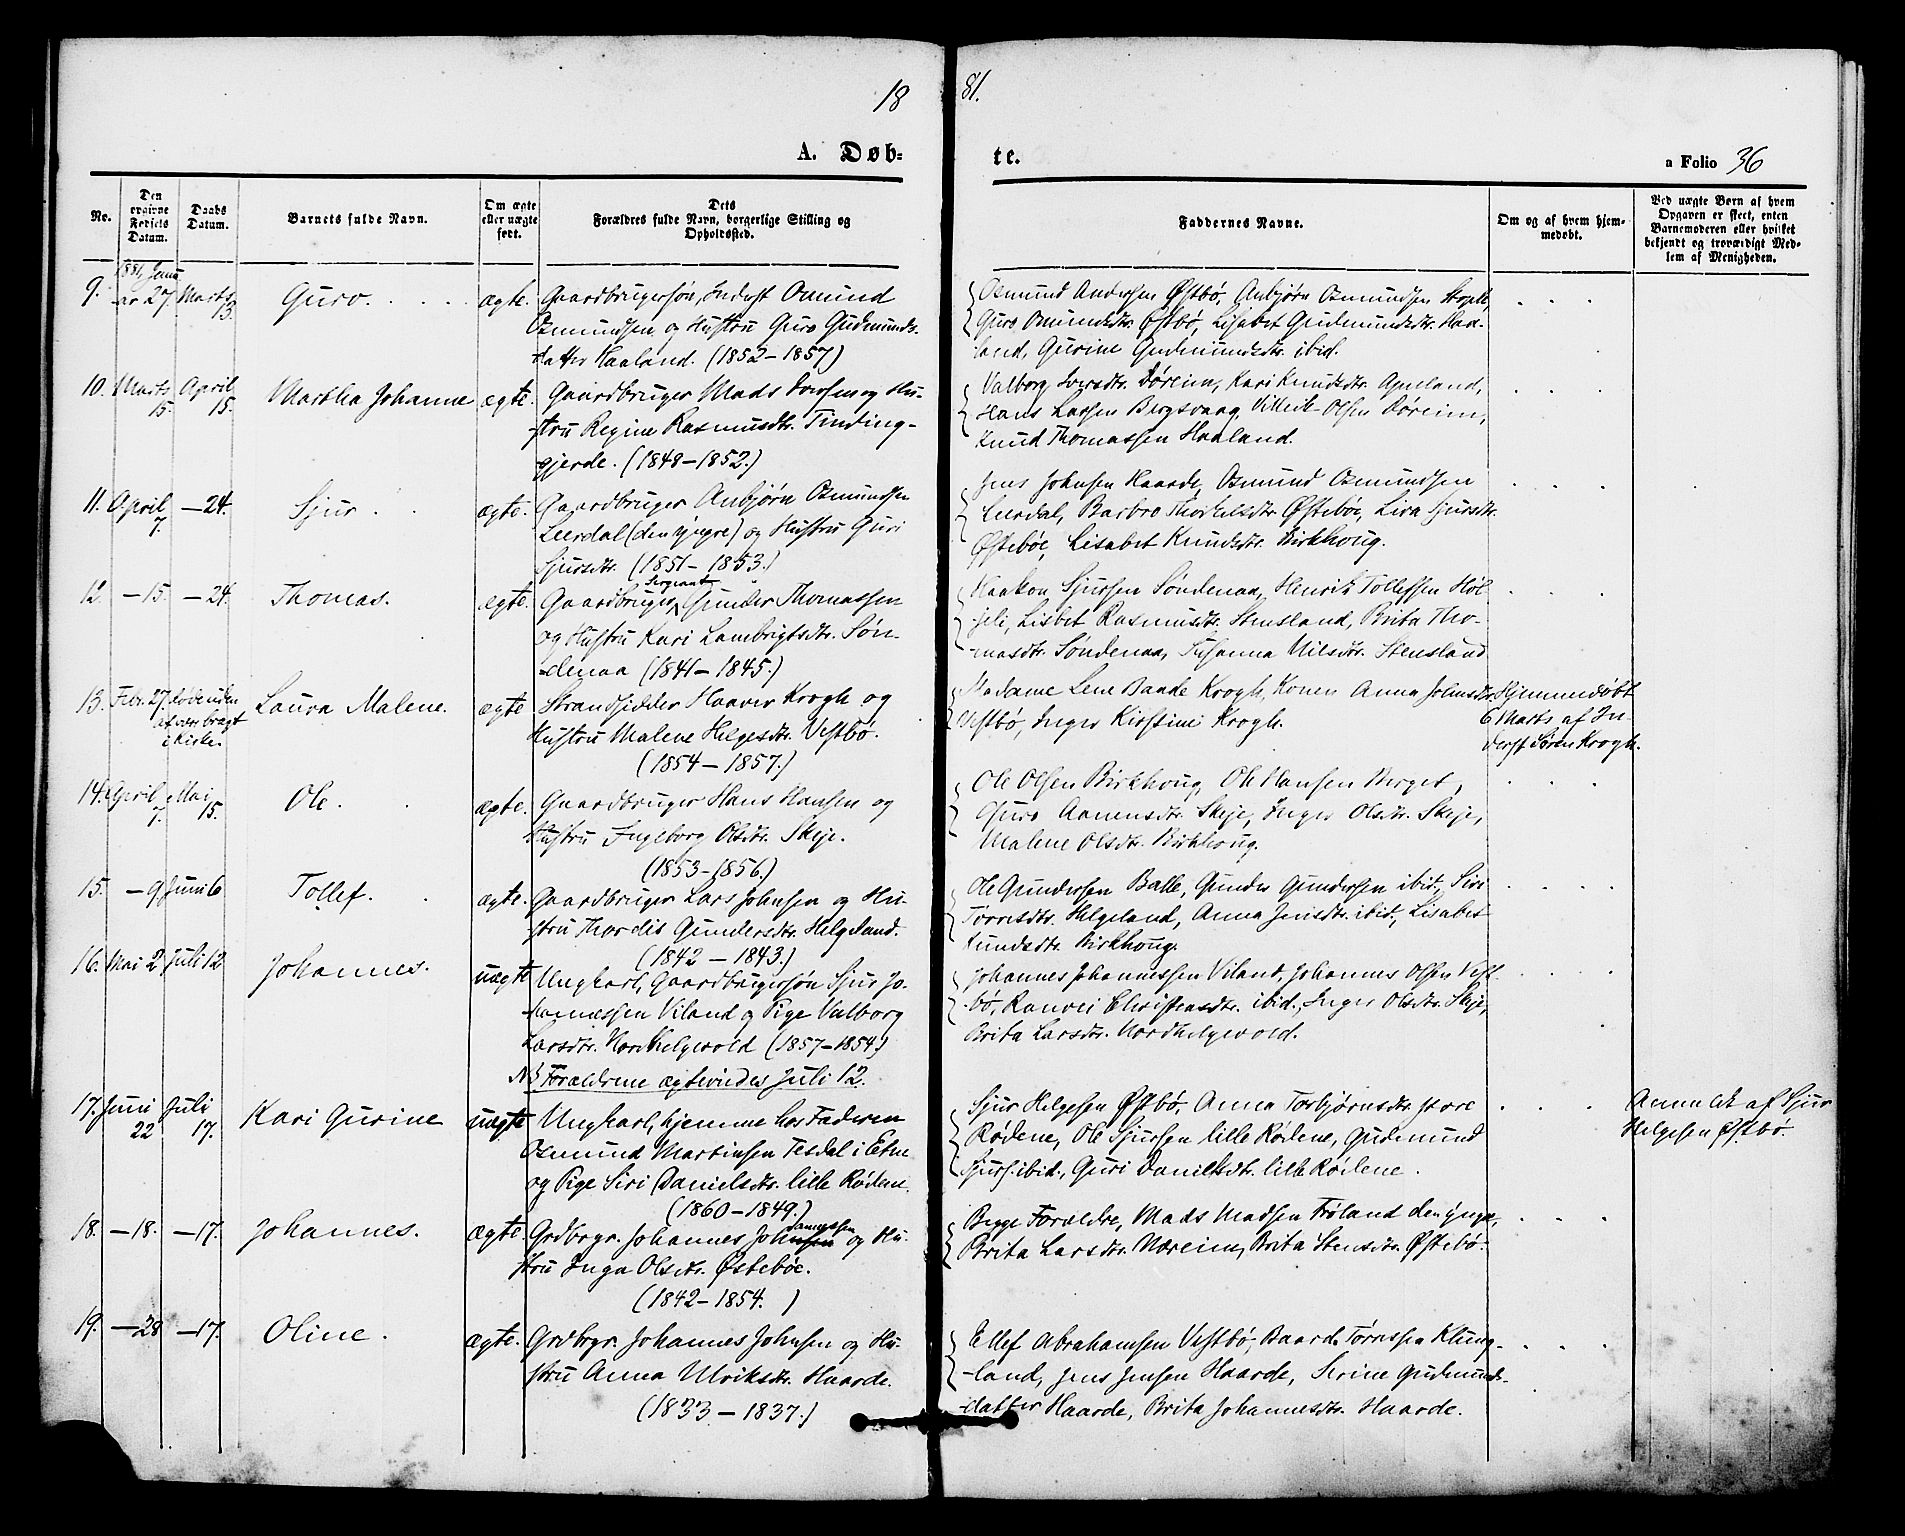 18
81.
A. Døb-
te.
a Folio 36
No.
Den
opgivne
Fødsels
Datum.
Daabs
Datum.
Barnets fulde Navn.
Om ægte
eller uægte
født.
Dets
Forældres fulde Navn, borgerlige Stilling og
Opholdssted.
Faddernes Navne.
Om og af hvem hjem-
medøbt.
Ved uægte Børn af hvem
Opgaven er skeet, enten
Barnemoderen eller hvilket
bekjendt og troværdigt Med-
lem af Menigheden.
9. 1881, Janu
ar 27. Marts
13. Guro. ægte. Gaardbrugersøn, Inderst Omund
Osmundsen og Hustru Guro Gudmunds-
datter Haaland. (1852–1857)
Osmund Andersen Østbö, Anbjørn Osmundsen
Guro Omundsdtr. Østbö, Lisabet Gudmundsdtr. Haa-
land, Gurine Gudmundsdtr. ibid.
10. Marts
15. April
15. Martha Johanne ægte. Gaardbruger Mads Iversen og Hu-
stru Regine Rasmusdtr. Tinding-
gjerde. (1848–1852.)
Valborg Iversdtr. Döreim, Kari Knudsdtr. Apeland,
Hans Larsen Bergsvaag, Villeik Olsen Döreim,
Knud Thomassen Haaland.
11. April
7. –24. Sjur. ægte. Gaardbruger Anbjørn Osmundsen
Leerdal (den yngre) og Hustru Guri
Sjursdtr. (1851–1853.)
Jens Johnsen Haarde, Osmund Osmundsen
Leerdal, Barbro Thorkelsdtr. Østebøe, Siva Sjursdtr.
Østebøe, Lisabet Knudsdtr. Birkhoug.
12. –15. –24. Thomas. ægte. Gaardbruger, Sergeant Gunder Thomassen
og Hustru Kari Lambrigtsdtr. Søn-
denaa (1841–1845.)
Haakon Sjursen Søndenaa, Henrik Tollefsen Höl-
jeli, Lisbet Rasmusdtr. Stensland, Brita Tho-
masdtr. Söndenaa, Susanna Nilsdtr. Stensland
13. Febr. 27. Døde uden
at være bragt
i Kirke. Laura Malene. ægte Strandsidder Haaver Krogh og
Hustru Malene Helgesdtr. Vestbö.
(1854–1857.)
Madame Lene Baade Krogh, Konen Anna Johnsdtr.
Vestbö, Inger Kirstine Krogh.
Hjemmedøbt
6 Marts af In-
derst Søren Krogh.
14. April
7. Mai
15. Ole. ægte. Gaardbruger Hans Hansen og
Hustru Ingeborg Olsdtr. Skeje.
(1853–1856.)
Ole Olsen Birkhoug, Ole Hansen Berget,
Guro Aamundsdtr. Skeje, Inger Olsdtr. Skeje,
Malene Olsdtr. Birkhoug.
15. –9. Juni 6 Tollef. ægte. Gaardbruger Lars Johnsen og Hu-
stru Thordis Gundersdtr. Helgeland.
(1842–1843.)
Ole Gundersen Balle, Gunder Gundersen ibid., Siri
Törresdtr. Helgeland, Anna Jensdtr. ibid., Lisabet
Knudsdtr. Birkhoug.
16. Mai 2. Juli 12 Johannes. uægte Ungkarl, Gaardbrugersøn Sjur Jo-
hannessen Viland og Pige Valborg
Larsdtr. Nordhelgevold (1857–1854.)
NB Forældrene ægtevindes Juli 12.
Johannes Johannessen Viland, Johannes Olsen Vest-
bö, Ranvei Christensdtr. ibid., Inger Olsdtr. Skeje,
Brita Larsdtr. Nordhelgevold.
17. Juni
22 Juli
17. Kari Gurine uægte Ungkarl, hjemme hos Faderen
Osmund Martinsen Tesdal i Etne
og Pige Siri Danielsdtr. lille Rödene.
(1860–1849.)
Sjur Helgesen Østbö, Anna Torbjørnsdtr. store
Rödene, Ole Sjursen lille Rödene, Gudmund
Sjurs. ibid., Guri Danielsdtr. lille Rödene.
Anmeldt af Sjur
Helgesen Østbö.
18. –18. –17. Johannes. ægte. Grdbrgr. Johannes Johannessen og Hu-
stru Inga Olsdtr. Østebøe.
(1842–1854.)
Begge Forældre, Mads Madsen Fröland den yngre,
Brita Larsdtr. Næreim, Brita Stensdtr. Østebö.
19. –28 –17. Oline. ægte. Grdbrgr. Johannes Johnsen og Hu-
stru Anna Ulriksdtr. Haarde.
(1833–1837.)
Ellef Abrahamsen Vestbö, Baard Törressen Klung-
land, Jens Jensen Haarde, Serine Gudmunds-
datter Haarde, Brita Johannesdtr. Haarde.